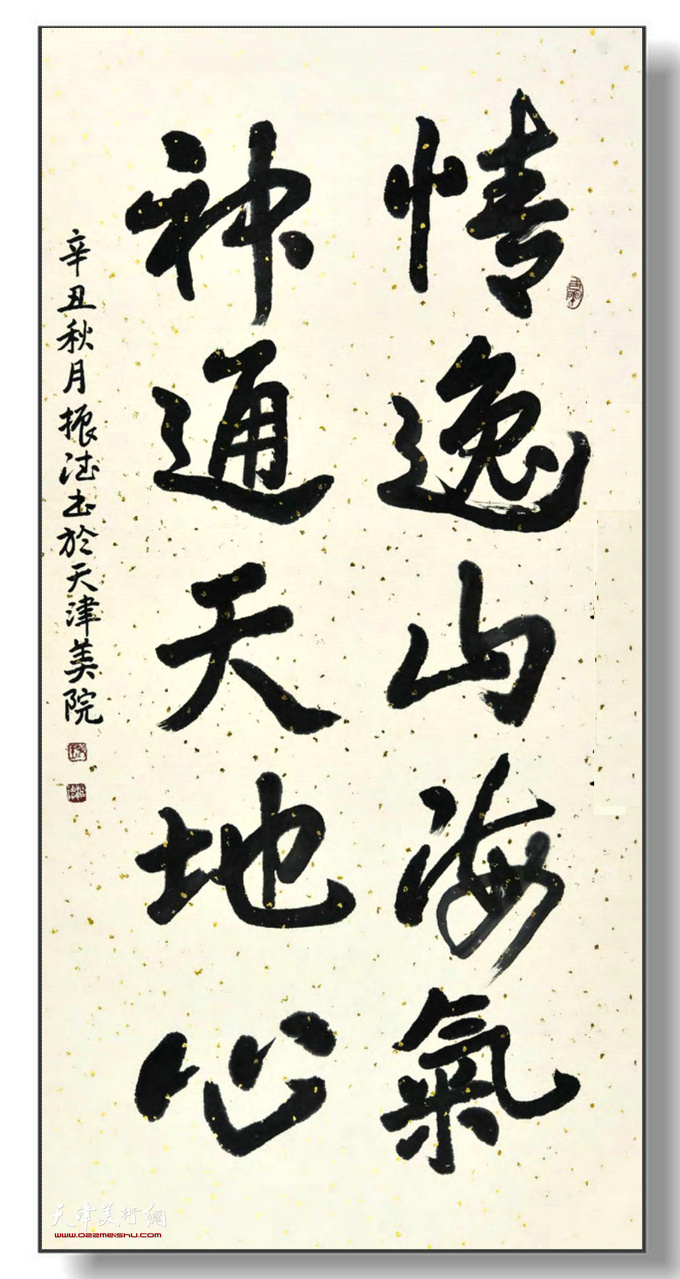 情逸山海氣
神通天地心
辛丑秋月振法书於天津美院
天津美術網
www.022meishu.com